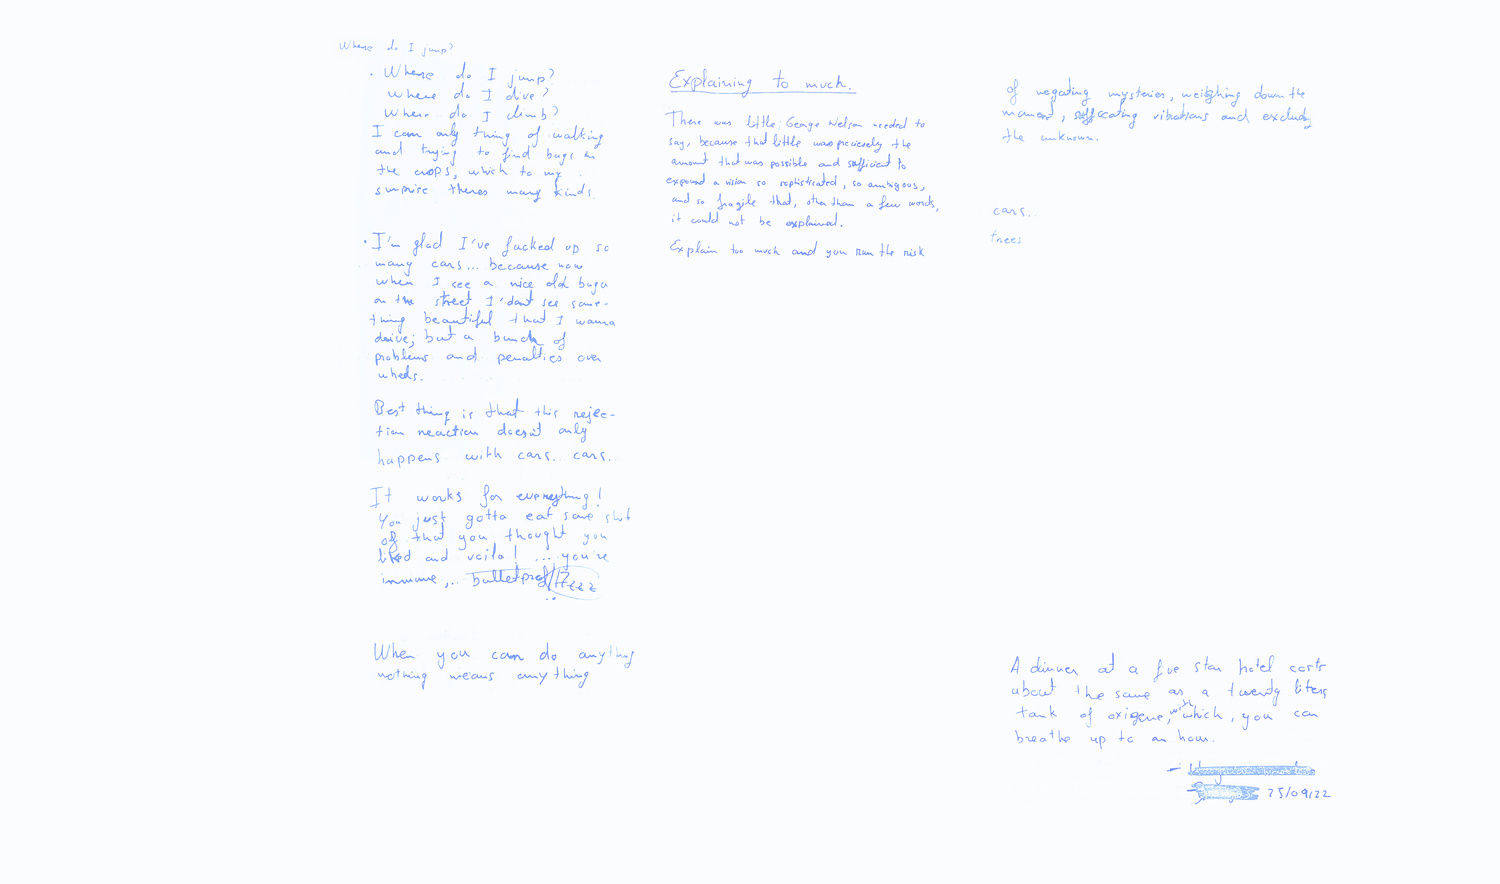 Where do I jump?
. Where do I jump?
Where do I dive?
Where do I climb?
I can only thing of walking
and trying to find bugs in
the crops, which to my
surprise theres many kinds.
. I'm glad I've fucked up so
many cars... because now
when I see a nice old buga
on the street I dont see some-
thing beautiful that I wanna
drive; but a bunch of
problems and penalties over
wheels.
Best thing is that this rejec-
tion reaction doesn't only
happens with cars... cars...
It works for everything!
You just gotta eat some shit
of that you thought you
liked and voila! ... you're
immune,... bulletproof
When you can do anything
nothing means anything
Explaining to much.
There was little, George Nelson needed to
say, because that little was precisely the
amount that was possible and sufficient to
expound a vision so sophisticated, so ambigous,
and so fragile that, other than a few words,
it could not be explained.
Explain too much and you run the risk
of negating mysteries, weighing down the
moment, suffocating vibrations and excluding
the unknown.
cars..
trees
A dinner at a five star hotel costs
about the same as a twenty liters
tank of oxigene, with which, you can
breathe up to an hour.
25/09/22